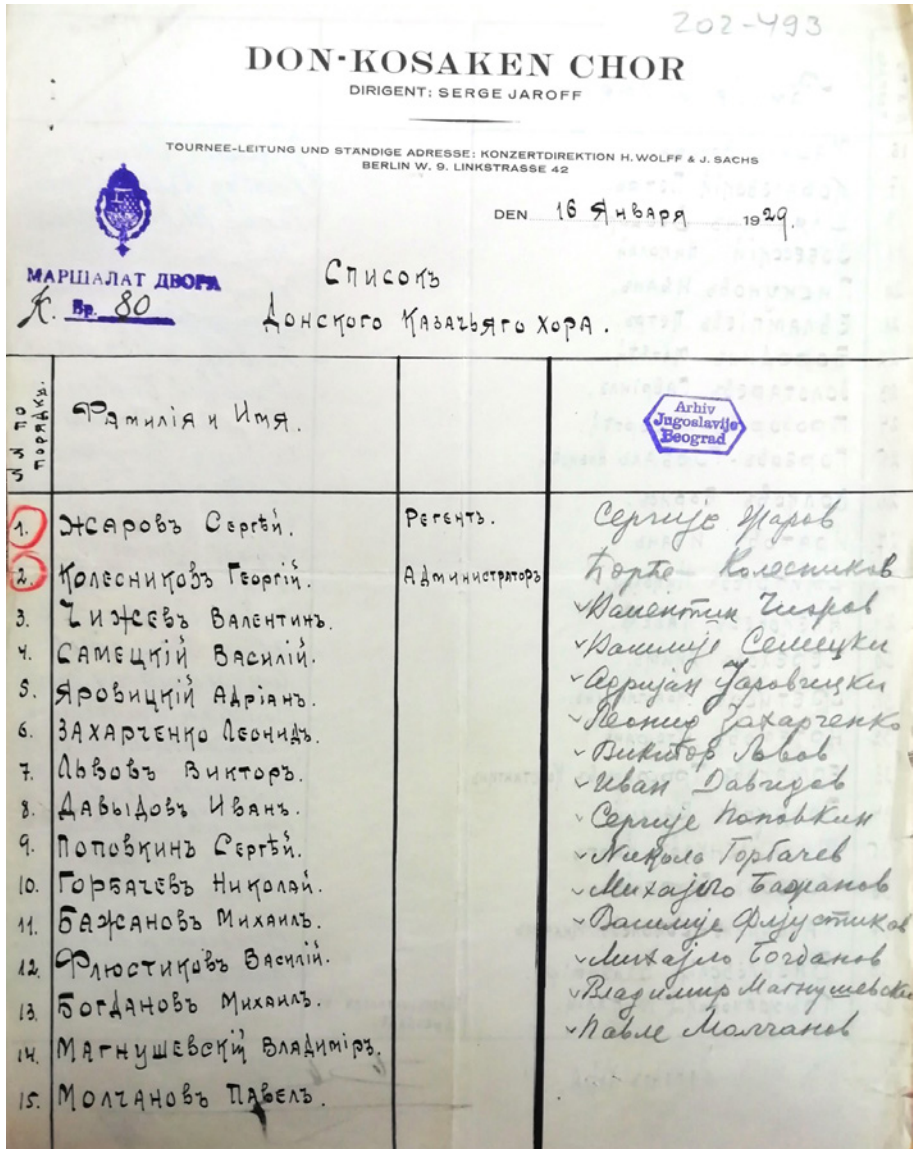 202-493
DON-KOSAKEN CHOR
DIRIGENT: SERGE JAROFF
TOURNEE-LEITUNG UND STÄNDIGE ADRESSE: KONZERTDIREKTION H. WOLFF & J. SACHS
BERLIN W. 9. LINKSTRASSE 42
DEN 16 Января 1929.
МАРШАЛАТ ДВОРА
К. Бр. 80
Списокъ
Донского Казачьяго Хора.
№№ по порядку. Фамилія и Имя.
Arhiv
Jugoslavije
Beograd
1. Жаровъ Сергѣй. Регентъ. Сергије Жаров
2. Колесниковъ Георгій. Администраторъ Ђорђе Колесников
3. Чижевъ Валентинъ. Валентин Чижров
4. Самецкій Василій. Василије Семецки
5. Яровицкій Адріанъ. Адријан Јаровицки
6. Захарченко Леонидъ. Леонид Захарченко
7. Львовъ Викторъ. Виктор Лвов
8. Давыдовъ Иванъ. Иван Давидов
9. Поповкинъ Сергѣй. Сергије Поповкин
10. Горбачевъ Николай. Никола Горбачев
11. Бажановъ Михаилъ. Михајло Бажанов
12. Флюстиковъ Василій. Василије Фљустиков
13. Богдановъ Михаилъ. Михајло Богданов
14. Магнушевскій Владиміръ. Владимир Магнушевски
15. Молчановъ Павелъ. Павле Молчанов